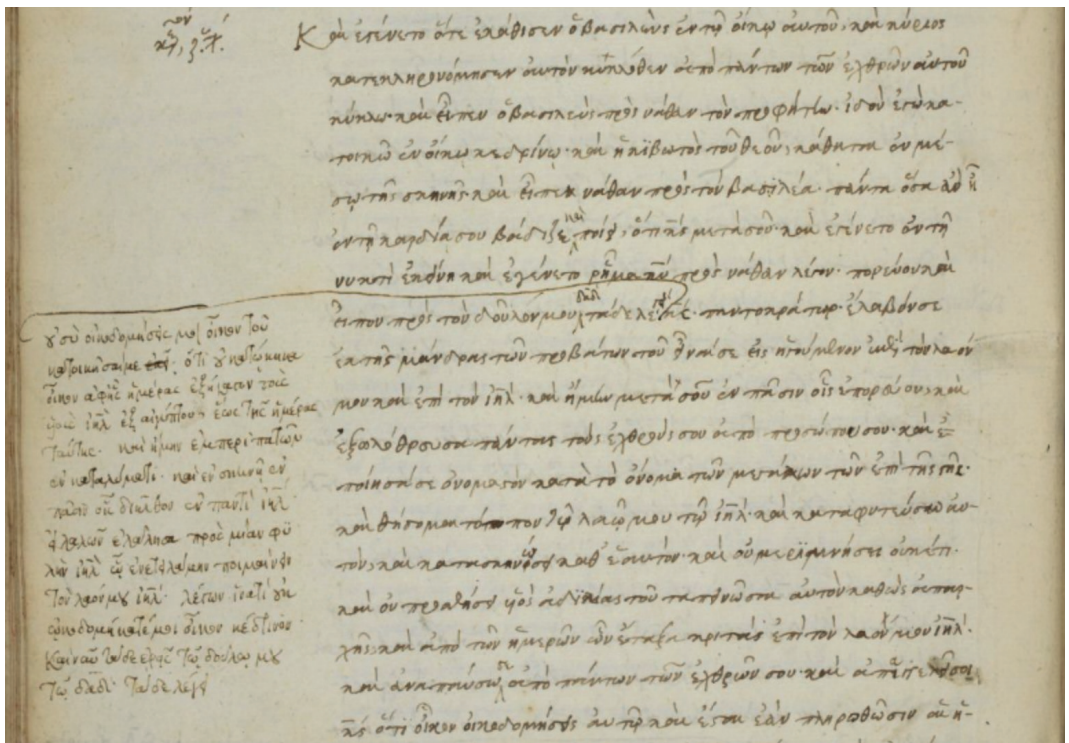 Καὶ ἐγένετο ὅτε ἐκάθισεν ὁ βασιλεὺς ἐν τῷ οἴκῳ αὐτοῦ, καὶ κύριος
κατεκληρονόμησεν αὐτὸν κύκλοθεν ἀπὸ πάντων τῶν ἐχθρῶν αὐτοῦ
κύκλῳ· καὶ εἶπεν ὁ βασιλεὺς πρὸς νάθαν τὸν προφήτην· ἰδοὺ ἐγὼ κα-
τοικῶ ἐν οἴκῳ κεδρίνῳ· καὶ ἡ κιβωτὸς τοῦ θεοῦ, κάθηται ἐν μέ-
σῳ τῆς σκηνῆς· καὶ εἶπεν νάθαν πρὸς τὸν βασιλέα· πάντα ὅσα ἂν ᾖ
ἐν τῇ καρδίᾳ σου βάδιζε καὶ ποίει, ὅτι κς μετὰ σοῦ· καὶ ἐγένετο ἐν τῇ
νυκτὶ ἐκείνῃ καὶ ἐγένετο ῥῆμα κυ πρὸς νάθαν λέγον· πορεύου καὶ
εἶπον πρὸς τὸν δοῦλόν μου δαδ τάδε λέγει κς· παντοκράτωρ· ἔλαβόν σε
ἐκ τῆς μάνδρας τῶν προβάτων τοῦ εἶναί σε εἰς ἡγούμενον ἐπὶ τὸν λαόν
μου καὶ ἐπὶ τὸν ιηλ· καὶ ἤμην μετὰ σοῦ ἐν πᾶσιν οἷς ἐπορεύου, καὶ
ἐξωλόθρευσα πάντας τοὺς ἐχθρούς σου ἀπὸ προσώπου σου· καὶ ἐ-
ποίησά σε ὀνομαστὸν κατὰ τὸ ὄνομα τῶν μεγάλων τῶν ἐπὶ τῆς γῆς·
καὶ θήσομαι τόπον τῷ λαῷ μου τῷ ιηλ· καὶ καταφυτεύσω αὐ-
τὸν, καὶ κατασκηνώσει καθ' ἑαυτὸν· καὶ οὐ μεριμνήσει οὐκέτι·
καὶ οὐ προσθήσει υἱὸς ἀδικίας τοῦ ταπεινῶσαι αὐτὸν καθὼς ἀπαρ-
χῆς, καὶ ἀπὸ τῶν ἡμερῶν ὧν ἔταξα κριτὰς ἐπὶ τὸν λαόν μου ιηλ·
καὶ ἀναπαύσω ἀπὸ πάντων τῶν ἐχθρῶν σου· καὶ ἀπαγγελεῖ σοι
κς ὅτι οἶκον οἰκοδομήσεις αὐτῷ καὶ ἔσται ἐὰν πληρωθῶσιν αἱ ἡ-
οὐ σὺ οἰκοδομήσεις μοι οἶκον τοῦ
κατοικῆσαί με· ὅτι οὐ κατώκηκα
οἶκον ἀφ' ἧς ἡμέρας ἐξήγαγον τοὺς
υἱοὺς ιηλ ἐξ αἰγύπτου ἕως τῆς ἡμέρας
ταύτης· καὶ ἤμην ἐμπεριπατῶν
ἐν καταλύματι· καὶ ἐν σκηνῇ ἐν
πᾶσιν οἷς διῆλθον ἐν παντὶ ιηλ
εἰ λαλῶν ἐλάλησα πρὸς μίαν φυ
λὴν ιηλ ᾧ ἐνετειλάμην ποιμαίνειν
τὸν λαόν μου ιηλ· λέγων ἱνατί οὐκ
ᾠκοδομήκατέ μοι οἶκον κέδρινον·
καὶ νῦν τάδε ἐρεῖς τῷ δούλῳ μου
τῷ δαδ· τάδε λέγει